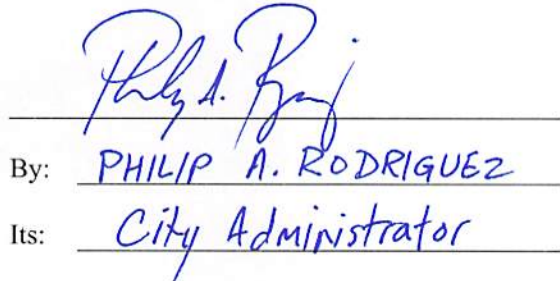 Philip A. R
By: PHILIP A. RODRIGUEZ
Its: City Administrator